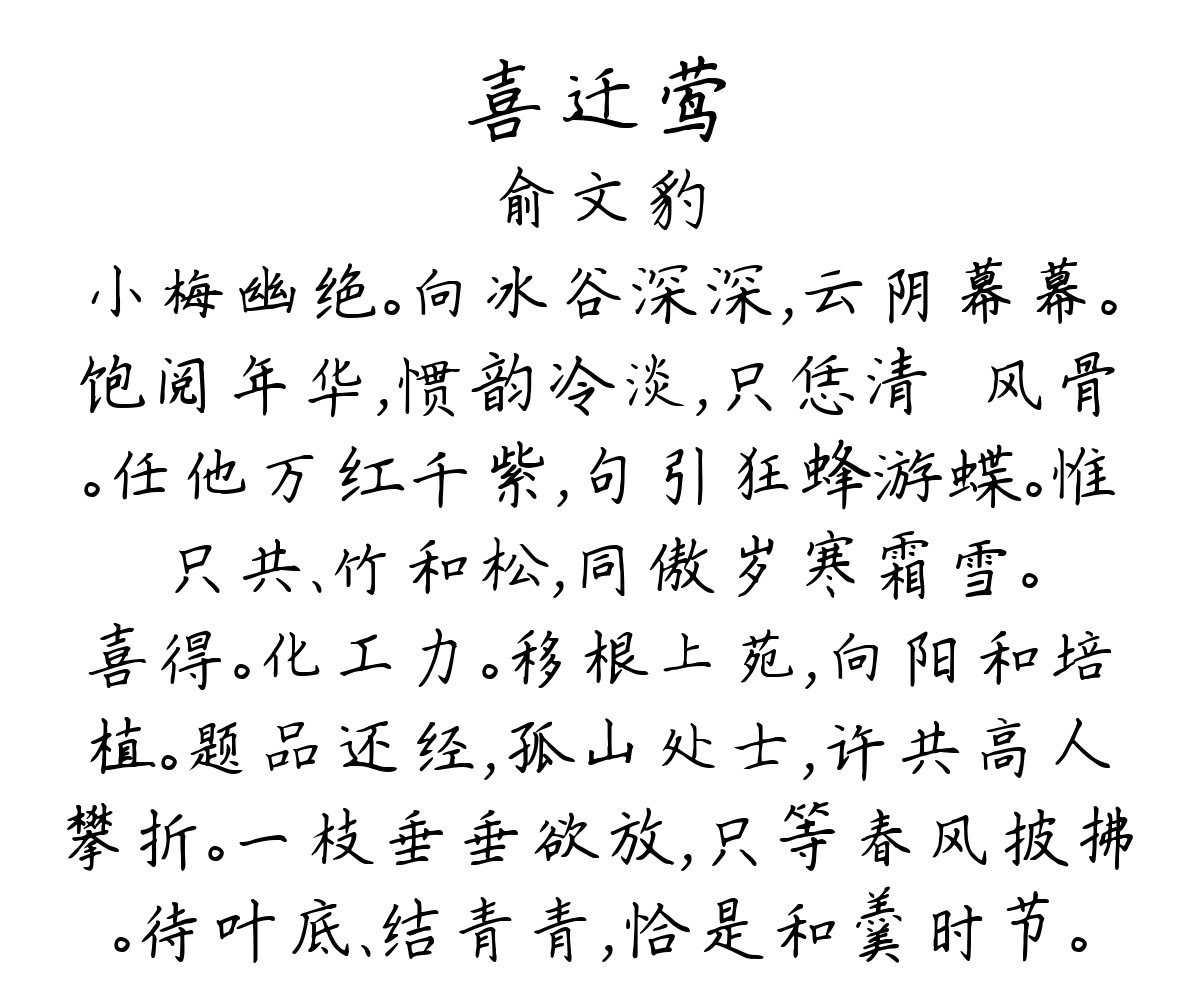 喜迁莺
俞文豹
小梅幽绝。向冰谷深深,云阴幕幕。
饱阅年华,惯韵冷淡,只恁清 风骨
。任他万红千紫,句引狂蜂游蝶。惟
只共、竹和松,同傲岁寒霜雪。
喜得。化工力。移根上苑,向阳和培
植。题品还经,孤山处士,许共高人
攀折。一枝垂垂欲放,只等春风披拂
。待叶底、结青青,恰是和羹时节。